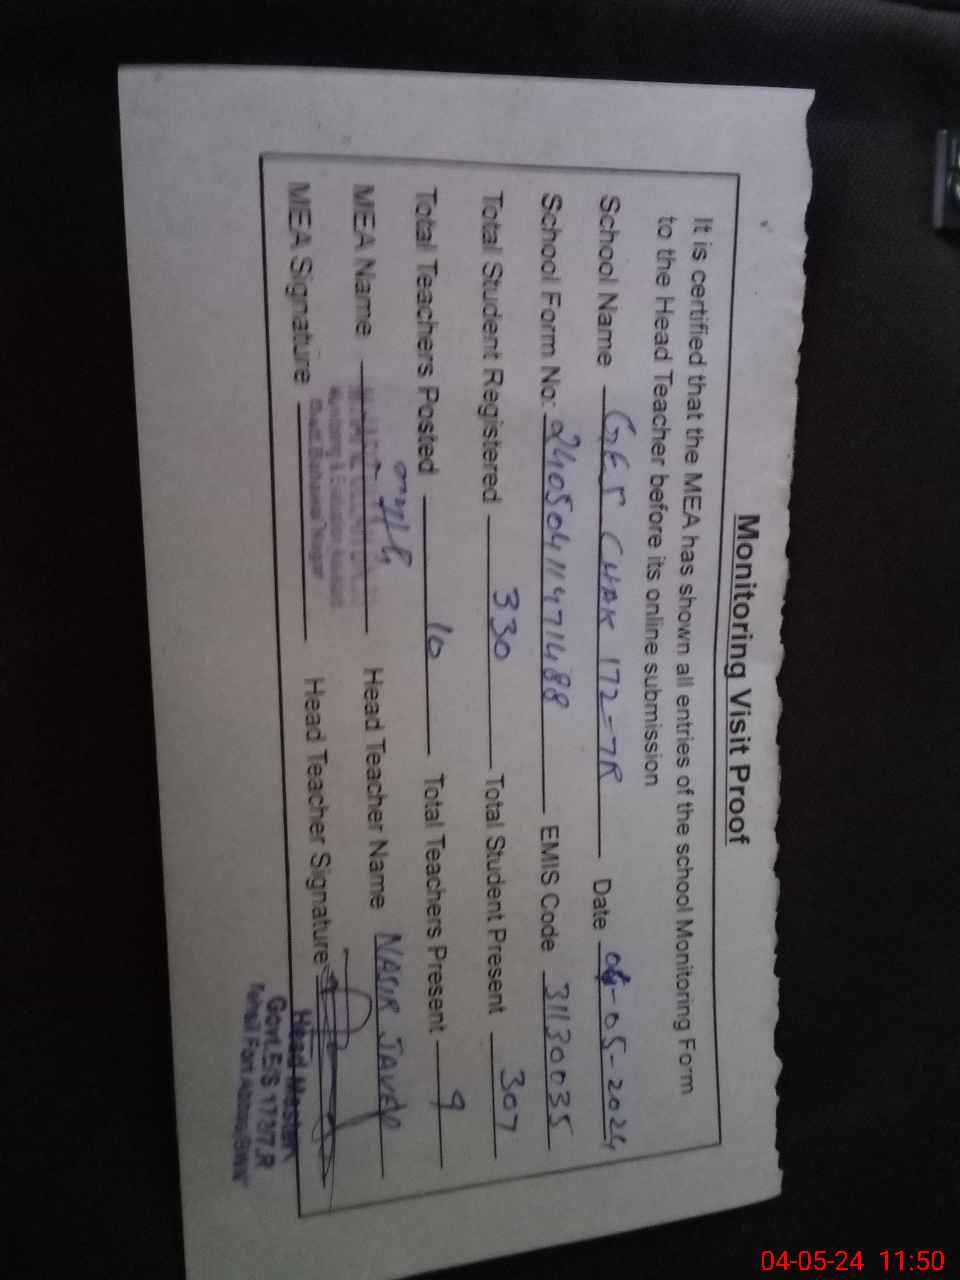 Monitoring Visit Proof
It is certified that the MEA has shown all entries of the school Monitoring Form
to the Head Teacher before its online submission
School Name GES CHAK 172-7R Date 04-05-2024
School Form No: 24050411471488 EMIS Code 31130035
Total Student Registered 330 Total Student Present 307
Total Teachers Posted 10 Total Teachers Present 9
MEA Name Head Teacher Name NASIR JAVED
MEA Signature Head Teacher Signature
Head Master
Govt. E/S 173/7.R
Tehsil Fort Abbas
04-05-24 11:50